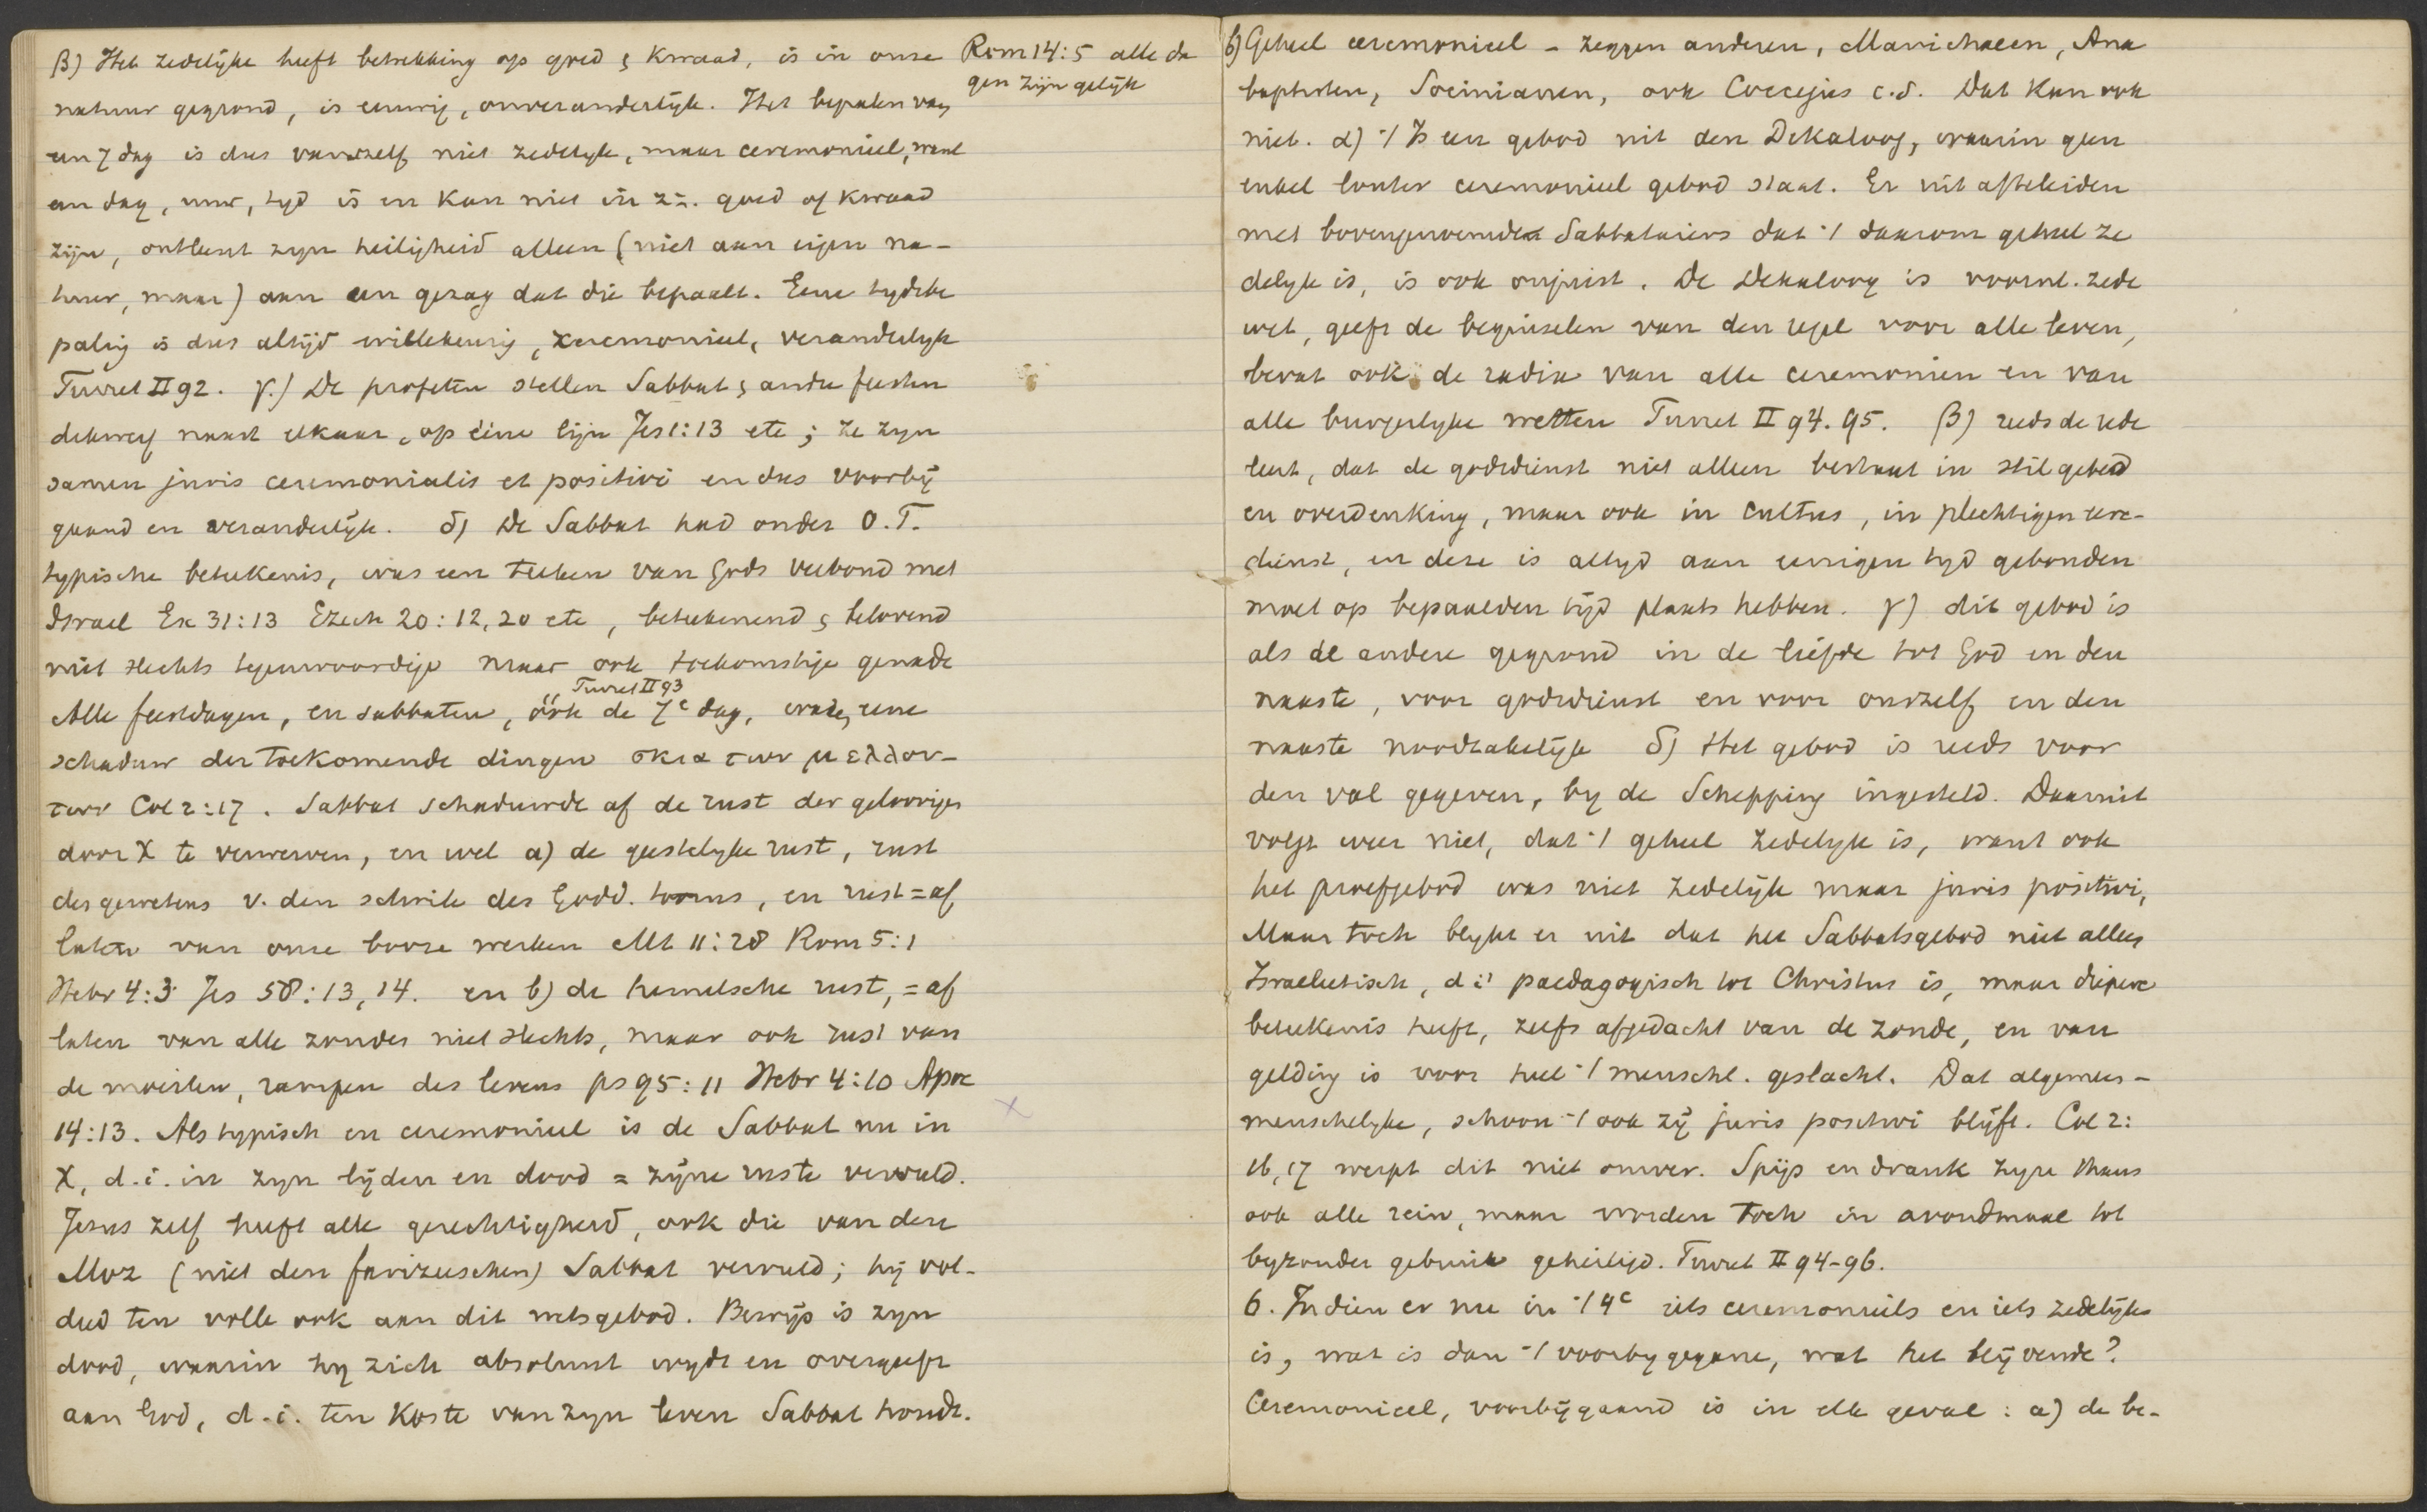 β) Het zedelijke heeft betrekking op goed & kwaad, is in onze
natuur gegrond, is eeuwig, onveranderlijk. Het bepalen van
een 7 dag is dus vanzelf niet zedelijk, maar ceremonieel, want
een dag, uur, tyd is en kan niet in z=. goed of kwaad
zijn, ontleent zyn heiligheid alleen (niet aan eigen na-
tuur, maar) aan een gezag dat die bepaalt. Eene tydsbe
paling is dus altijd willekeurig, ceremonieel, veranderlyk
Turret II 92. γ.) De profeten stellen Sabbat & andre feesten
dikwerf naast elkaar, op eene lijn Jes 1:13 etc; ze zyn
samen juris ceremonialis et positivi en dus voorbij
gaand en veranderlijk. δ) De Sabbat had onder O.T.
typische beteekenis, was een teeken van Gods verbond met
Israel Ex 31:13 Ezech 20:12,20 etc, beteekenend & belovend
niet slechts tegenwoordige maar ook toekomstige genade
Turret II 93
Alle feestdagen, en sabbaten, ook de 7e dag, waren eene
schaduw der toekomende dingen σκια των μελλον-
των Col 2:17. Sabbat schaduwde af de rust der geloovigen
door X te verwerven, en wel a) de geestelyke rust, rust
des gewetens v. den schrik des Godd. toorns, en rust = af
laten van onze booze werken Mt 11:28 Rom 5:1
Hebr 4:3 Jes 58:13,14. en b) de hemelsche rust, = af
laten van alle zonden niet slechts, maar ook rust van
de moeiten, rampen des levens ps 95:11 Hebr 4:10 Apoc
14:13. Als typisch en ceremonieel is de Sabbat nu in
X, d.i. in zyn lijden en dood = zijne ruste vervuld.
Jesus zelf heeft alle gerechtigheid, ook die van den
Moz (niet den farizeeschen) Sabbat vervuld; hij vol-
deed ten volle ook aan dit wetsgebod. Bewijs is zyn
dood, waarin hy zich absoluut wydt en overgeeft
aan God, d.i. ten koste van zyn leven Sabbat houdt.
Rom 14:5 alle da
gen zijn gelijk
b) Geheel ceremonieel - zeggen anderen, Manichaeen, Ana
baptisten, Socinianen, ook Coccejus c.s. Dat kan ook
niet. α) -/ Is een gebod uit den Dekaloog, waarin geen
enkel louter ceremonieel gebod staat. Er uit afteleiden
met bovengenoemde Sabbatariers dat -/ daarom geheel ze
delyk is, is ook onjuist. De Dekaloog is voornl. zede
wet, geeft de beginselen van den regel voor alle leven,
bevat ook de radix van alle ceremonien en van
alle burgerlyke wetten Turret II 94. 95. β) reeds de rede
leert, dat de godsdienst niet alleen bestaat in stil gebed
en overdenking, maar ook in cultus, in plechtigen eere-
dienst, en deze is altyd aan eenigen tyd gebonden
moet op bepaalden tijd plaats hebben. γ) dit gebod is
als de andere gegrond in de liefde tot God en den
naaste, voor godsdienst en voor onszelf en den
naaste noodzakelijk δ) Het gebod is reeds voor
den val gegeven, by de Schepping ingesteld. Daaruit
volgt weer niet, dat -/ geheel zedelyk is, want ook
het proefgebod was niet zedelijk maar juris positivi,
Maar toch blykt er uit dat het Sabbatsgebod niet alleen
Israelietisch, d.i. paedagogisch tot Christus is, maar diepere
beteekenis heeft, zelfs afgedacht van de zonde, en van
gelding is voor heel -/ menschl. geslacht. Dat algemeen-
menschelyke, schoon -/ ook zij juris positivi blijft. Col 2:
16,17 werpt dit niet omver. Spijs en drank zyn thans
ook alle rein, maar worden toch in avondmaal tot
byzonder gebruik geheiligd. Turret II 94-96.
6. Indien er nu in -/ 4e iets ceremonieels en iets zedelijks
is, wat is dan -/ voorby gegane, wat het blijvende?
Ceremonieel, voorbijgaand is in elk geval: a) de be-